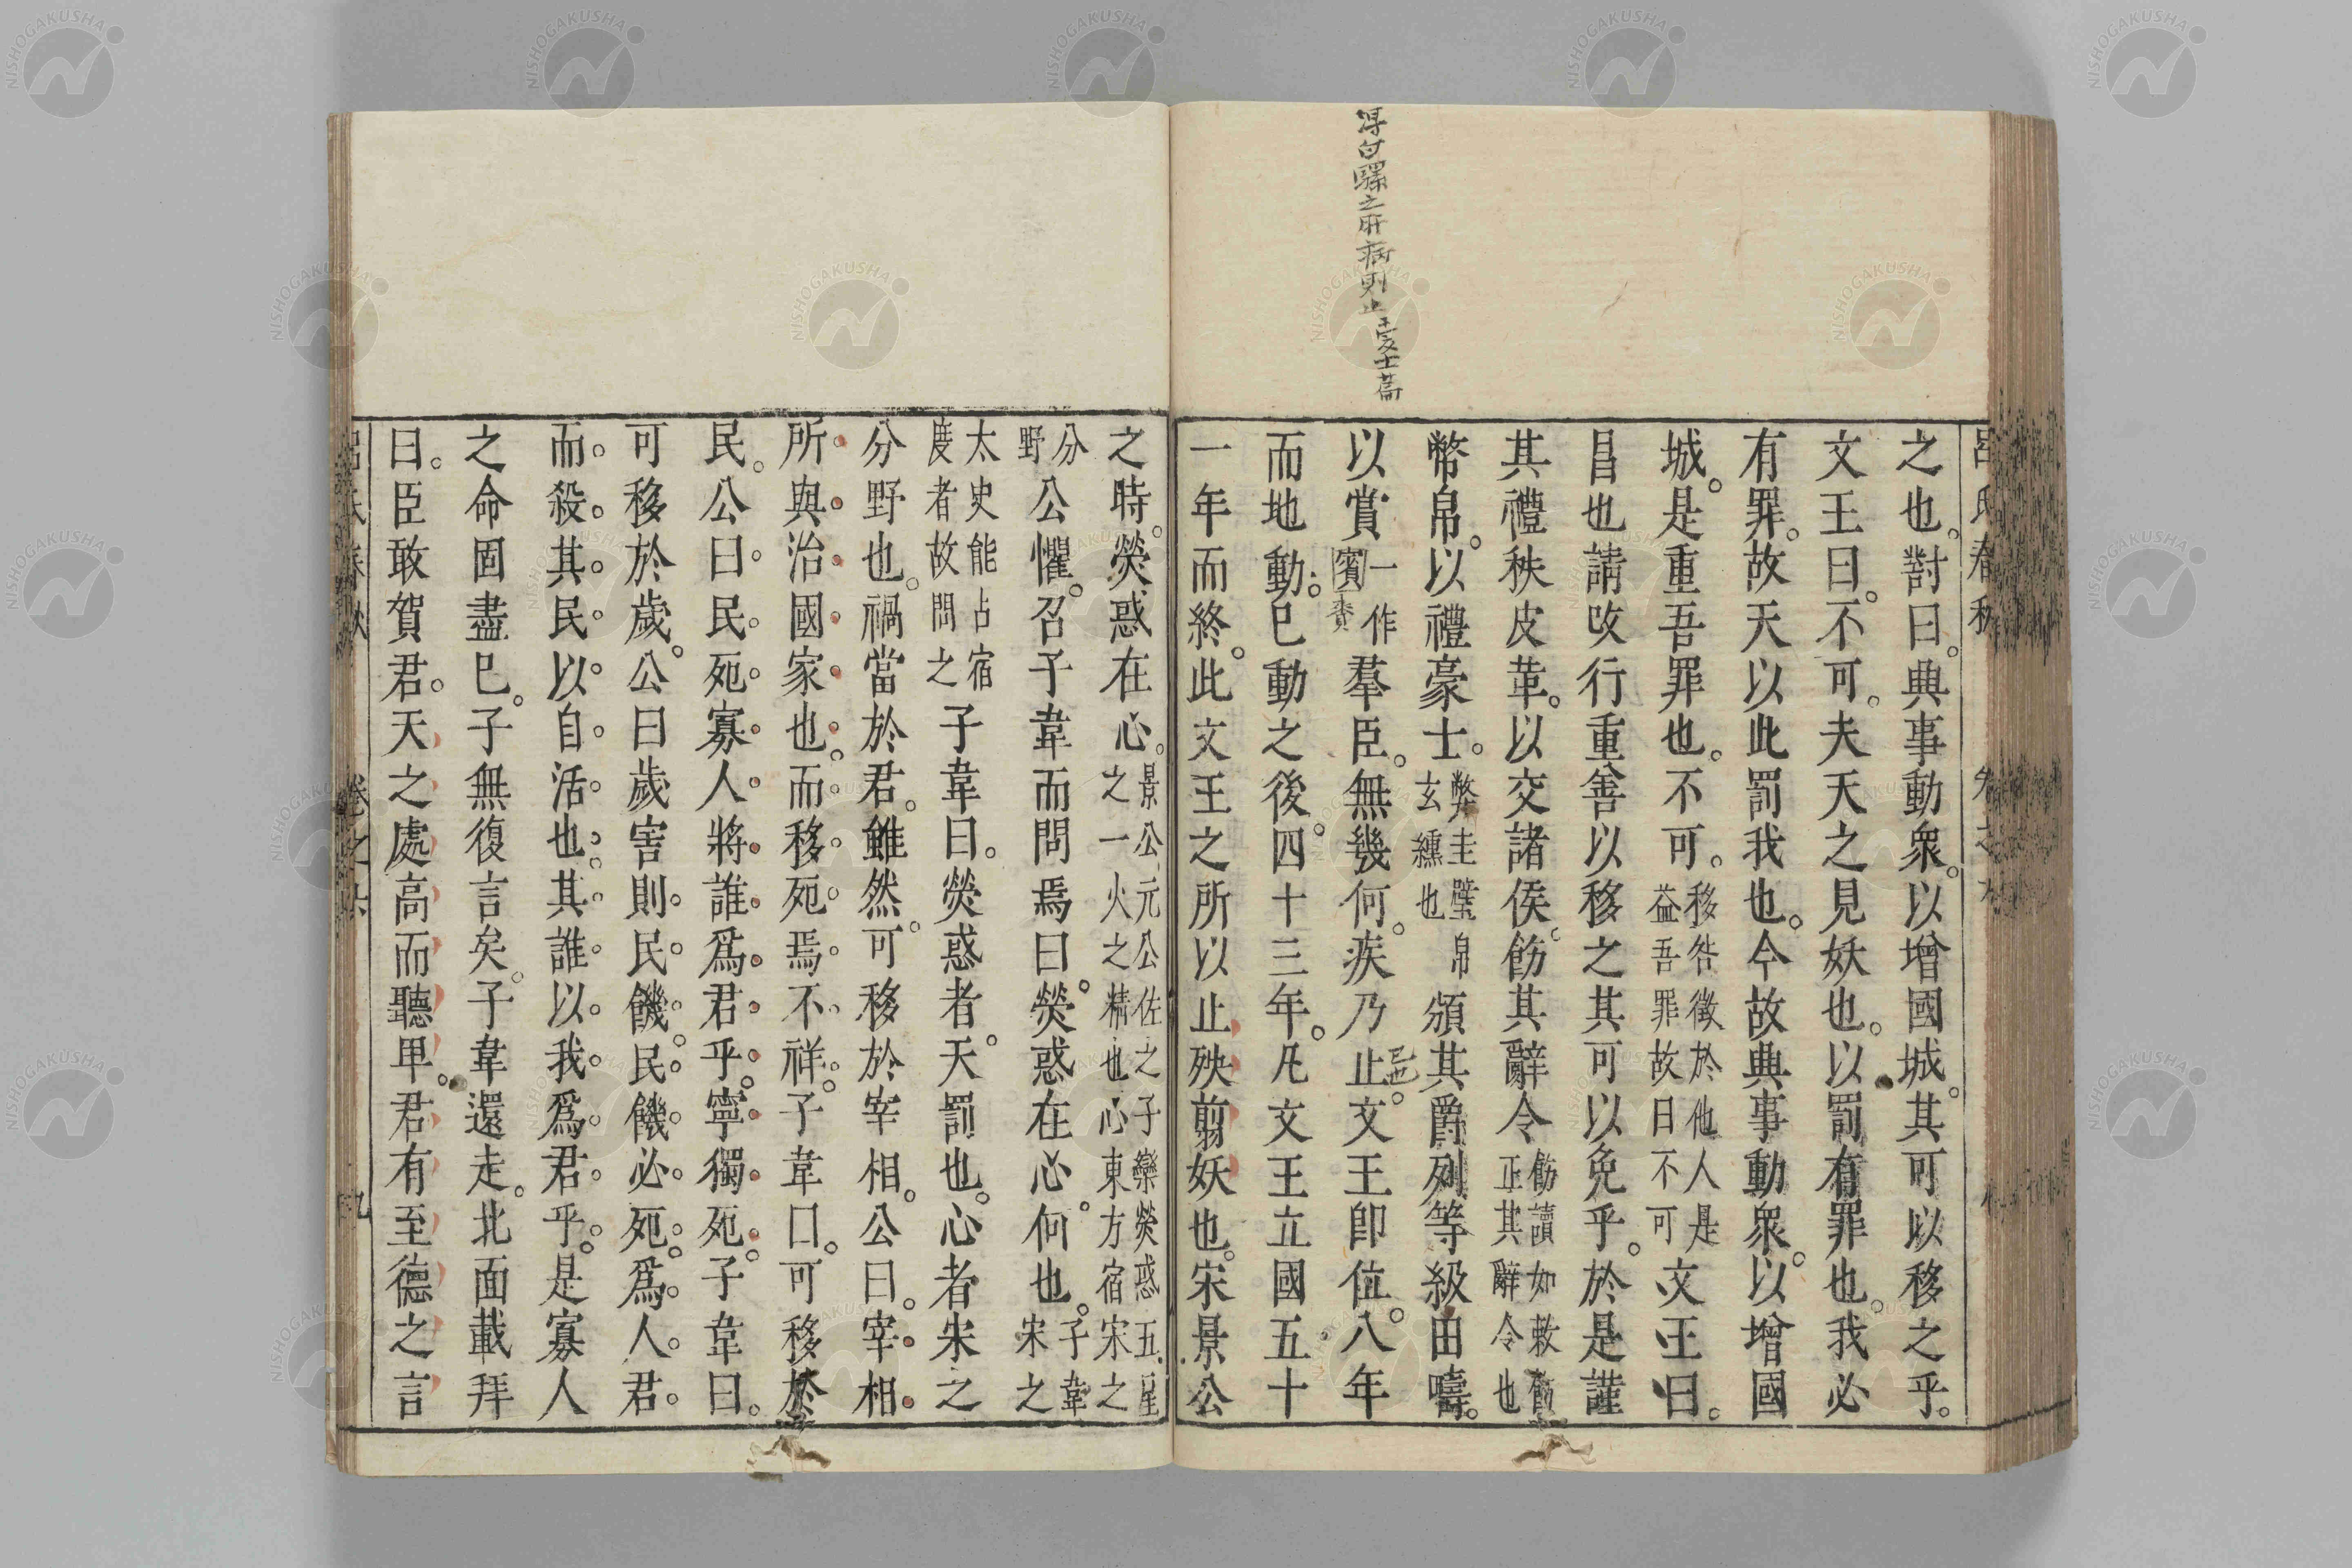 得白騾之肝病則止 愛士篇
之也對曰典事動衆以增國城其可以移之乎
文王曰不可夫天之見妖也以罰有罪也我必
有罪故天以此罰我也今故典事動衆以增國
城是重吾罪也不可移咎徵於他人是益吾罪故曰不可文王曰
昌也請改行重善以移之其可以免乎於是謹
其禮秩皮革以交諸侯飭其辭令飭讀如敕飭正其辭令也
幣帛以禮豪士幣圭璧帛玄纁也頒其爵列等級田疇
以賞一作賓賚羣臣無幾何疾乃止止也文王卽位八年
而地動已動之後四十三年凡文王立國五十
一年而終此文王之所以止殃剪妖也宋景公
之時熒惑在心景公元公佐之子欒熒惑五星之一火之精也心東方宿宋之
分野公懼召子韋而問焉曰熒惑在心何也子韋宋之
太史能占宿度者故問之子韋曰熒惑者天罰也心者宋之
分野也禍當於君雖然可移於宰相公曰宰相
所與治國家也而移死焉不祥子韋曰可移於
民公曰民死寡人將誰爲君乎寧獨死子韋曰
可移於歲公曰歲害則民饑民饑必死爲人君
而殺其民以自活也其誰以我爲君乎是寡人
之命固盡已子無復言矣子韋還走北面載拜
曰臣敢賀君天之處高而聽卑君有至德之言